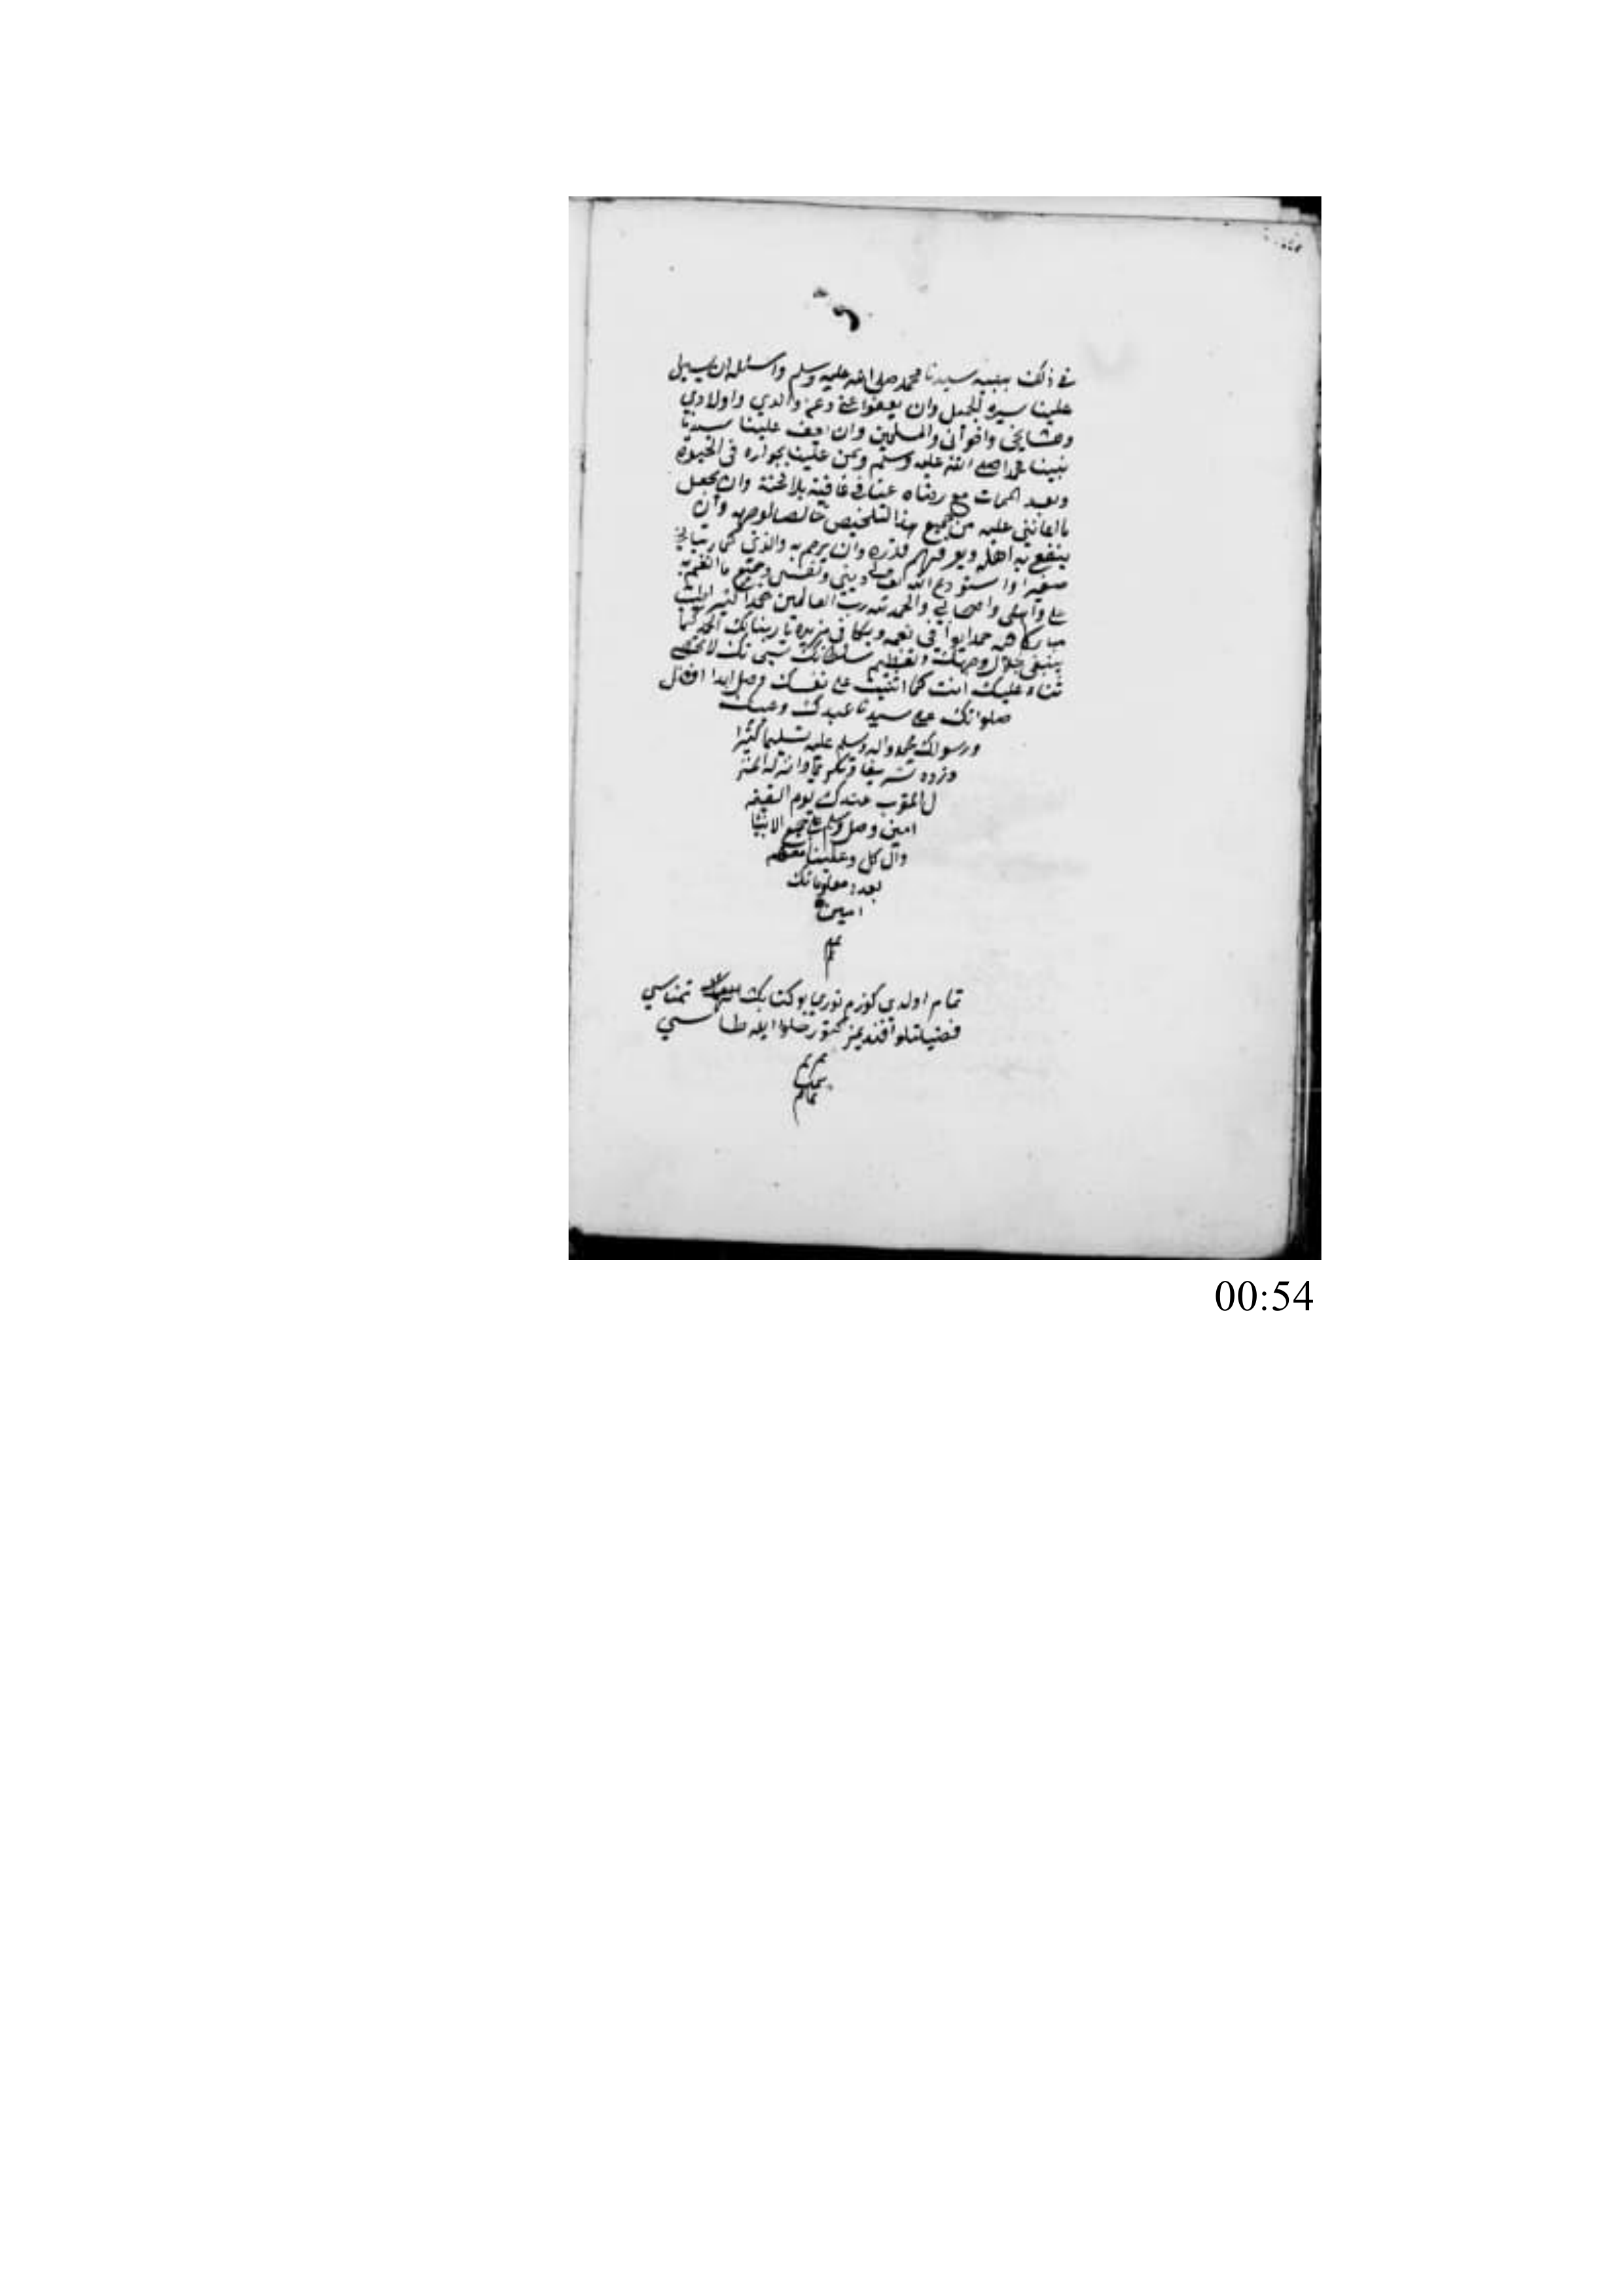 في ذلك بنبيه سيدنا محمد صلى الله عليه وسلم واسئله ان يسبل
علينا ستره الجميل وان يعفوا عني وعن والدي واولادي
ومشايخي واخواني والمسلمين وان علينا سيدنا
نبينا محمدا صلى الله عليه وسلم ويمن علينا بجواره في الحيوة
وبعد الممات مع رضاه عنا في عافية بلا محنة وان يجعل
ما اعانني عليه من جميع هذا التلخيص خالصا لوجهه وان
ينفع به اهله ويعرفهم قدره وان يرحم به والدي كما ربياني
صغيرا واستودع الله تعالى ديني ونفسي وجميع ما انعم به
علي واهلي واصحابي والحمد لله رب العالمين حمدا كثيرا طيبا
مباركا حمدا يوافي نعمه ويكافي مزيده يا ربنا لك الحمد كما
ينبغي لجلال وجهك وتعظيم سلطانك سبحانك لا نحصي
ثناء عليك انت كما اثنيت على نفسك وصل ابدا افضل
صلواتك على سيدنا عبدك
ورسولك محمد واله وسلم عليه تسليما كثيرا
وزده تشريفا وتكريما وانزله المنز
ل المقرب عندك يوم القيمة
امين وصل وسلم على جميع الانبيا
وآل كل وعلينا معهم
بعدد معلوماتك
امين
تم
تمام اولدي كوزم نوري بو كتابك تمناسي
فضيلتلو افنديمز